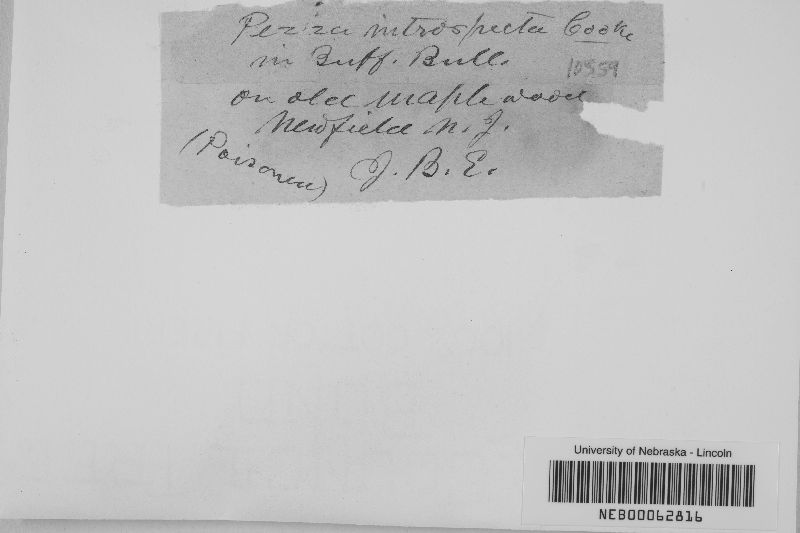 Peziza introspecta Cooke
in Buff. Bull.
10559
on old maple wood
Newfield N. J.
(Poisoned) J. B. E.
University of Nebraska - Lincoln
NEB00062816